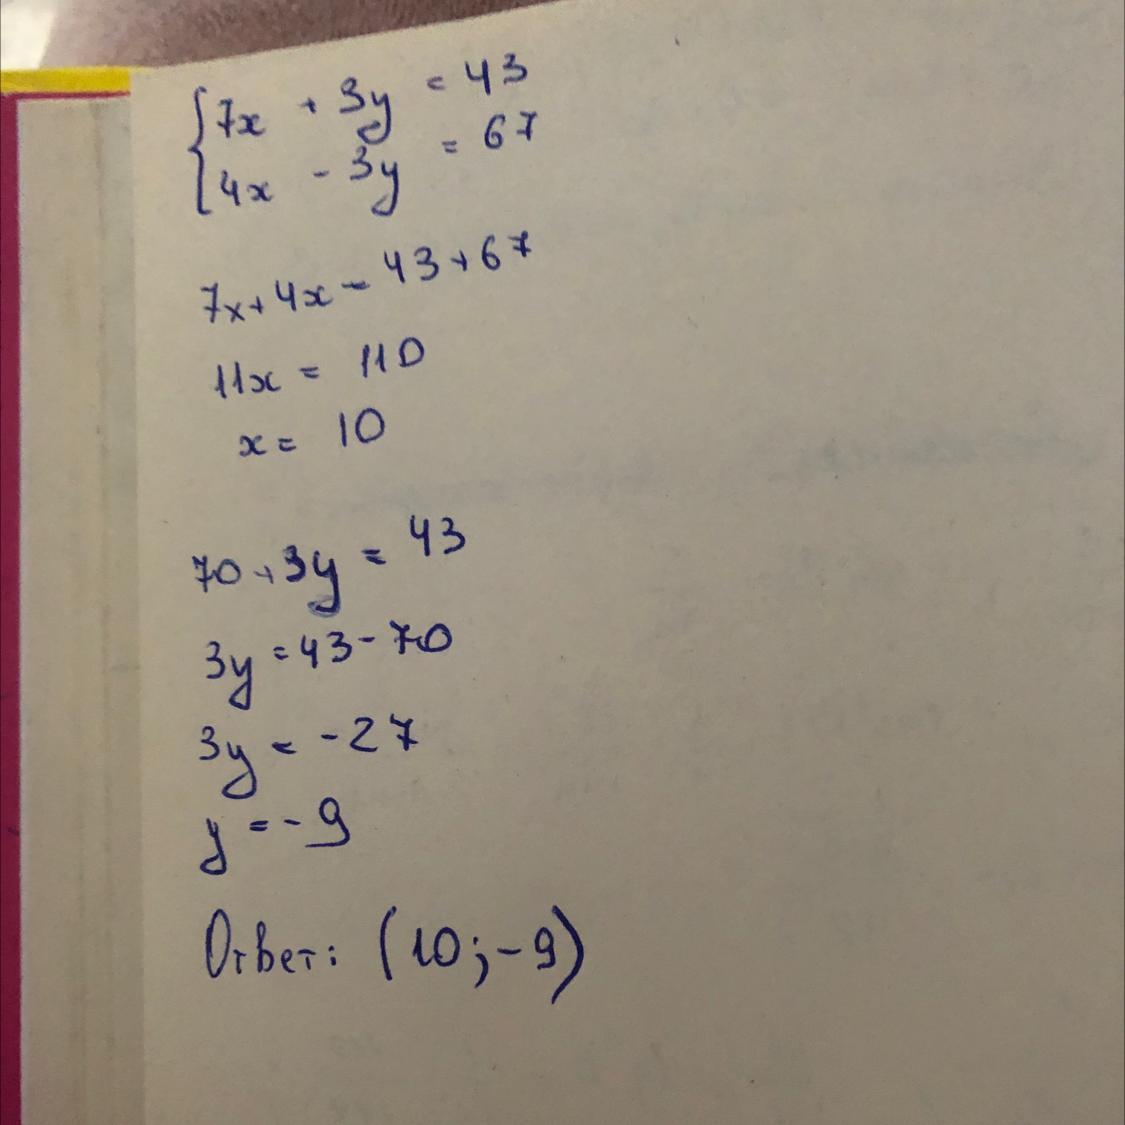 {7x + 3y = 43
4x - 3y = 67
7x+4x = 43+67
11x = 110
x = 10
70+3y = 43
3y = 43-70
3y = -27
y = -9
Ответ: (10;-9)